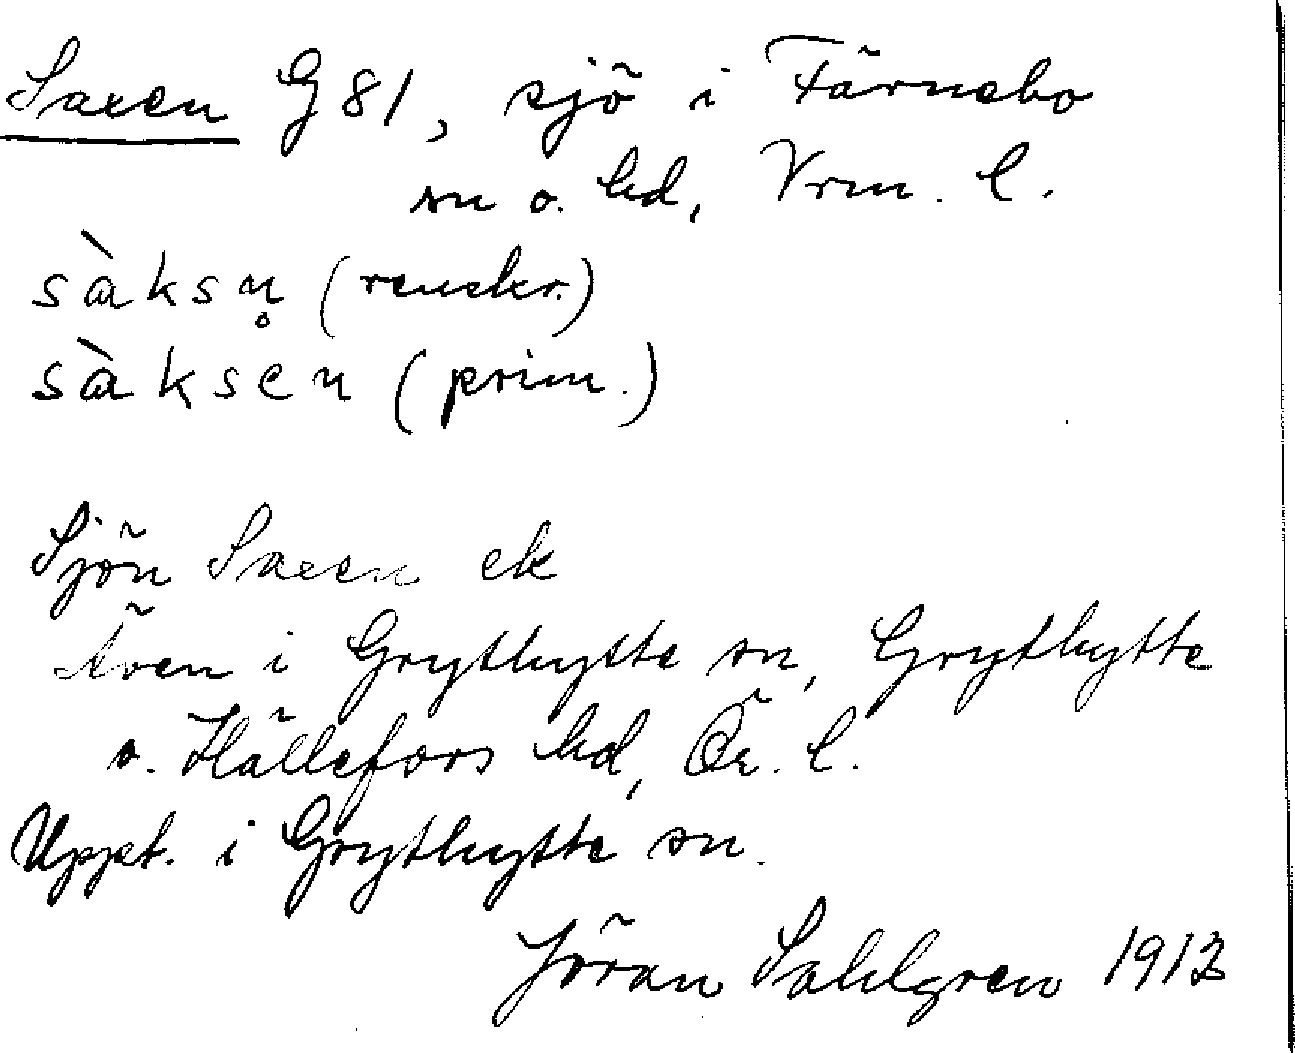 Saxen G 81, sjö i Färnebo
sn o. hd, Vrm. l.
sàksn̥ (renskr.)
sàksen (prim.)
Sjön Saxen ek
Även i Grythytte sn, Grythytte
o. Hällefors hd, Ör. l.
Uppt. i Grythytte sn.
Jöran Sahlgren 1913